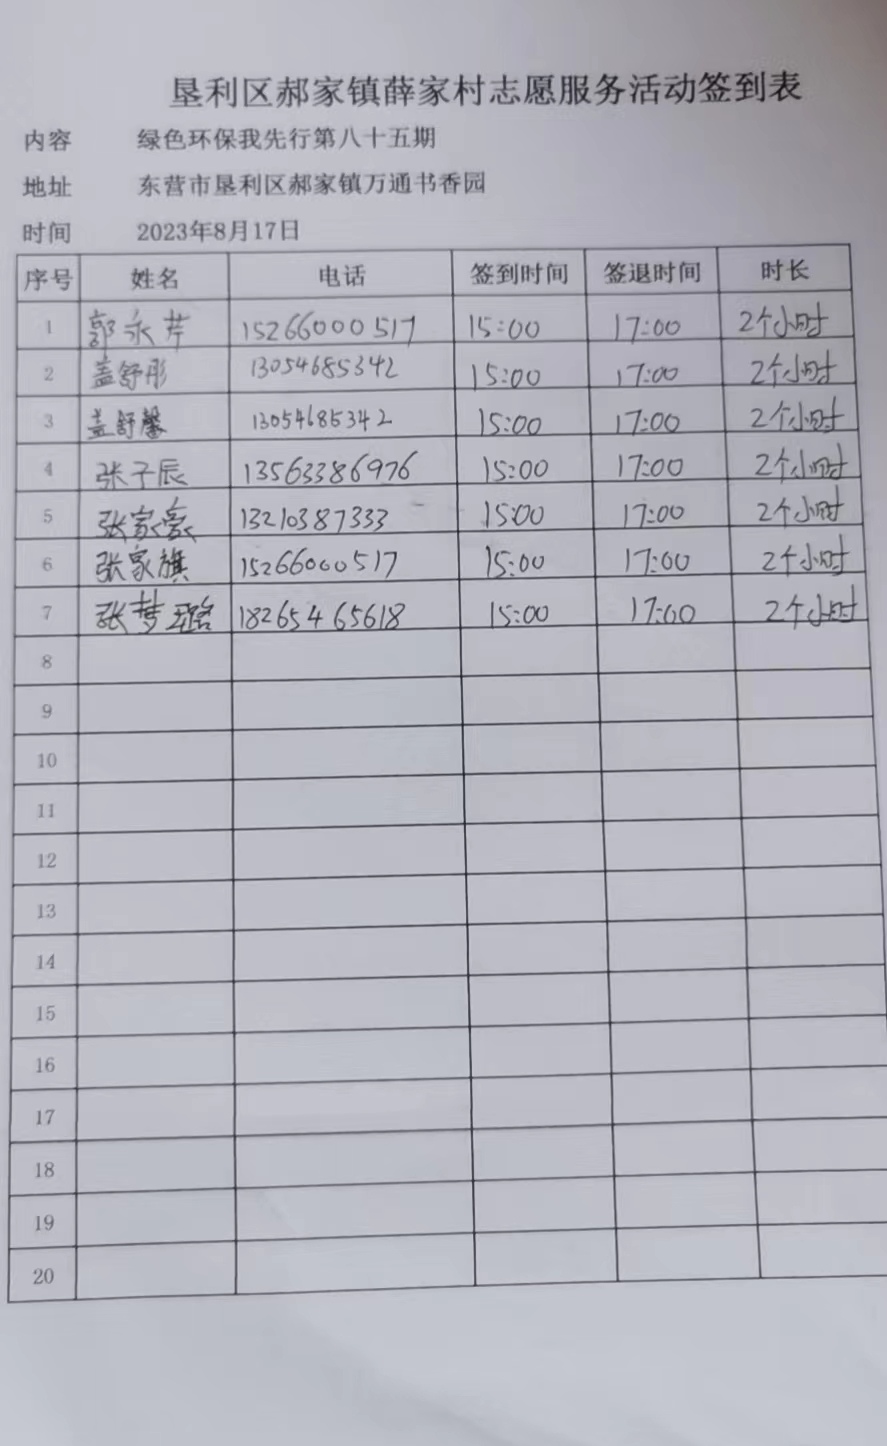 垦利区郝家镇薛家村志愿服务活动签到表
内容 绿色环保我先行第八十五期
地址 东营市垦利区郝家镇万通书香园
时间 2023年8月17日
序号 姓名 电话 签到时间 签退时间 时长
1 郭永芹 15266000517 15:00 17:00 2个小时
2 盖舒彤 13054685342 15:00 17:00 2个小时
3 盖舒馨 13054685342 15:00 17:00 2个小时
4 张子辰 13563386976 15:00 17:00 2个小时
5 张家豪 13210387333 15:00 17:00 2个小时
6 张家旗 15266000517 15:00 17:00 2个小时
7 张梦璐 18265465618 15:00 17:00 2个小时
8
9
10
11
12
13
14
15
16
17
18
19
20